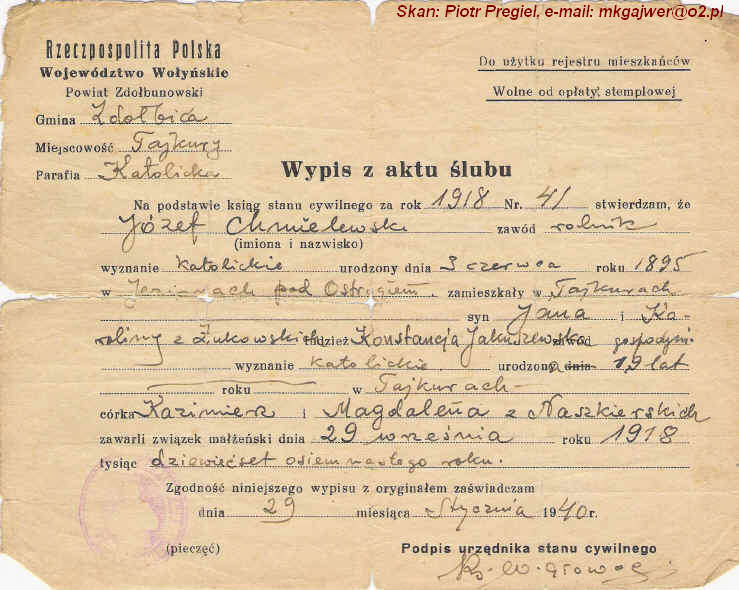 Skan: Piotr Pregiel, e-mail: mkgajwer@o2.pl
Rzeczpospolita Polska
Województwo Wołyńskie
Powiat Zdołbunowski
Gmina Zdołbica
Miejscowość Tajkury
Parafia Katolicka
Do użytku rejestru mieszkańców
Wolne od opłaty stemplowej
Wypis z aktu ślubu
Na podstawie ksiąg stanu cywilnego za rok 1918 Nr. 41 stwierdzam, że
Józef Chmielewski zawód rolnik
(imiona i nazwisko)
wyznanie katolickie urodzony dnia 3 czerwca roku 1895
w pod Ostrogiem, zamieszkały w Tajkurach
syn Jana i Ka-
roliny z Żukowskich tudzież Konstancja zawód gospodyni
wyznanie katolickie. urodzona dnia 19 lat
roku w Tajkurach
córka Kazimierz i Magdalena z Naszkierskich
zawarli związek małżeński dnia 29 września roku 1918
tysiąc dziewięćset osiemnastego roku.
Zgodność niniejszego wypisu z oryginałem zaświadczam
dnia 29 miesiąca Stycznia 1940 r.
(pieczęć)
Podpis urzędnika stanu cywilnego